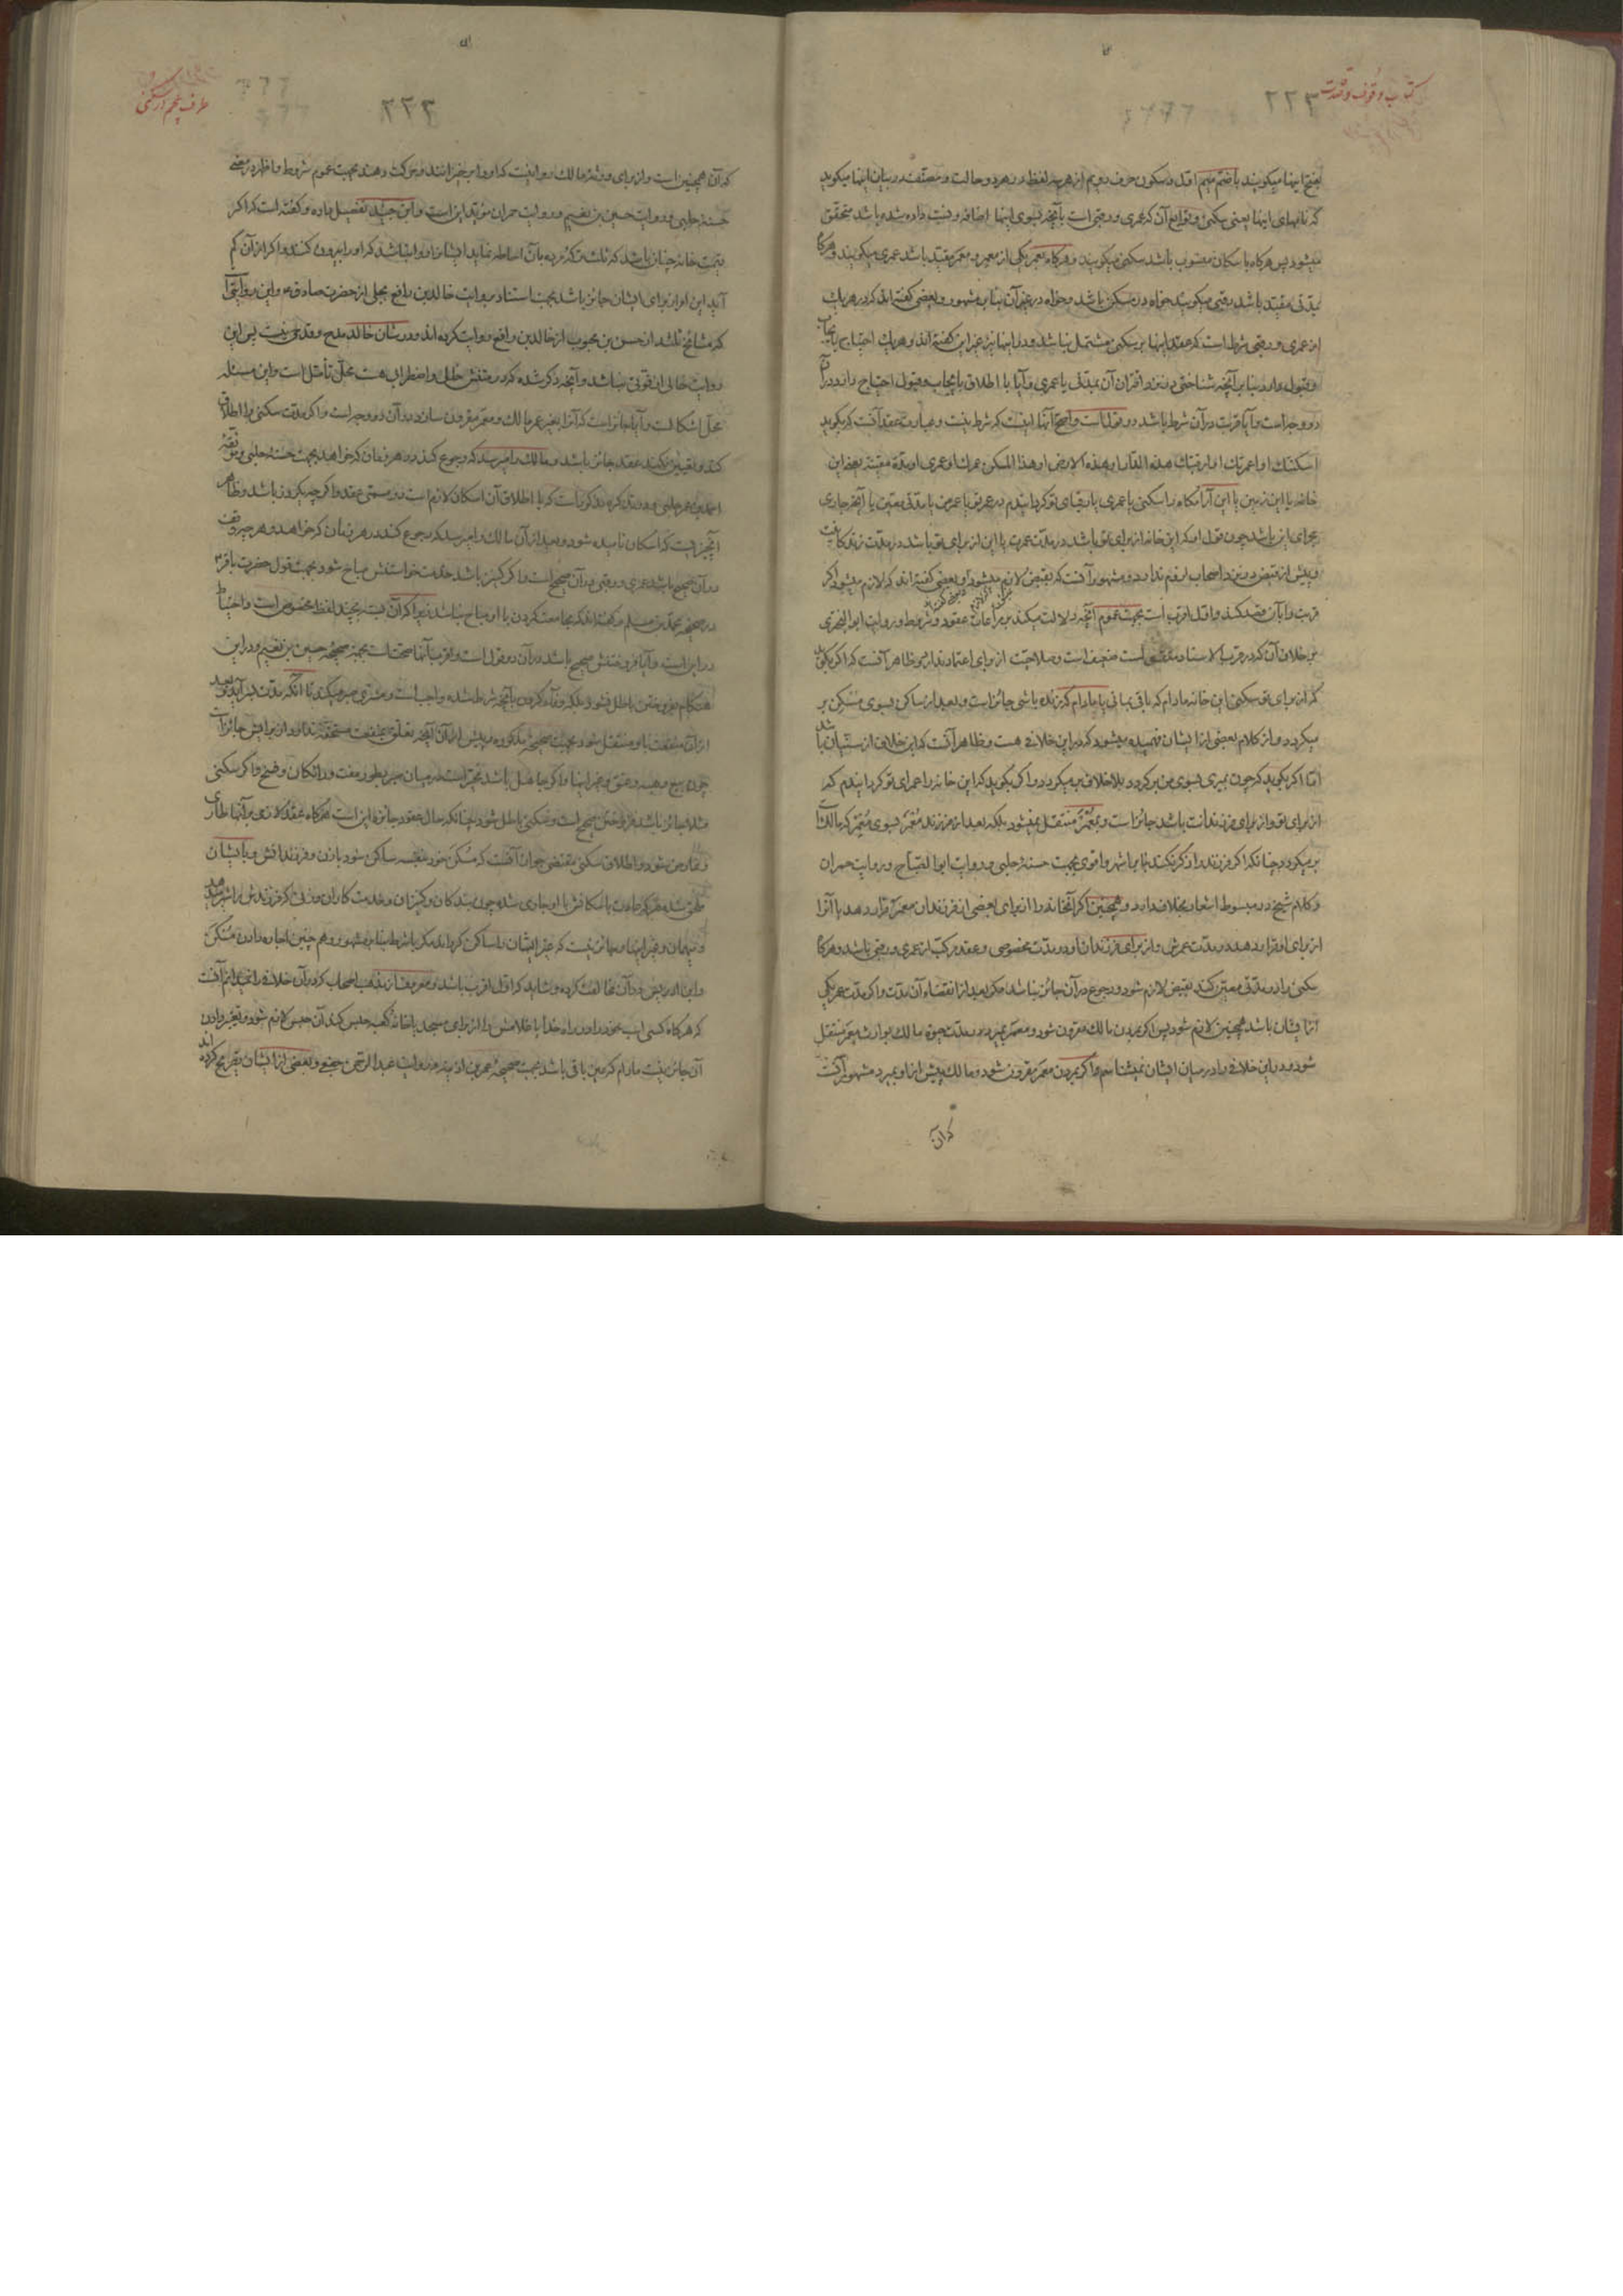 کتاب وقوف و صدقات
۲۲۳
بفتح اینها میکویند یا ضم میم اول و سکون حرف دویم از هر سه لفظ در هر دو حالت و مصنف در بیان اینها میکوید
که نامهای اینها یعنی سکنی و توابع آن که عمری و رقبی است بآنچه بسوی اینها اضافه و نسبت داده شده باشد متحقق
میشود پس هرکاه باسکان منسوب باشد سکنی میکویند و هرکاه بعمر یکی از معمر و معمر مقید باشد عمری میکویند و هرکاه
بمدتی مقید باشد رقبی میکویند خواه در مسکن باشد و خواه در غیر آن بنابر مشهور و بعضی کفته اند که در هر یک
از عمری و رقبی شرط است که عقد اینها بر سکنی مشتمل نباشد و در اینها نیز غیر این کفته اند و هر یک احتیاج بایجاب
و قبول دارد بنابر آنچه شناختی و اقتران آن بمدتی یا عمری و آیا با اطلاق بایجاب و قبول احتیاج دارد در آن
دو وجه است و آیا قربت در آن شرط باشد دو قول است و اصح آنها اینست که شرط نیست و عبارت عقد آنست که بکوید
اسکنتک او اعمرتک او ارقبتک هذه الدار او هذه الارض او هذا المسکن عمرک او عمری او مدة معینة یعنی این
خانه یا این زمین یا این آرامکاه را سکنی یا عمری یا رقبای تو کردانیدم در عمر تو یا عمر من یا مدتی معین یا آنچه جاری
مجرای این باشد چون قول او که این خانه از برای تو باشد در مدت عمرت یا این از برای تو باشد در مدت زندکانیت
و پیش از قبض در نزد اصحاب لزوم ندارد و مشهور آنست که بقبض لازم میشود و بعضی کفته اند که لازم میشود اکر
قربت را بآن قصد کند و اول اقرب است بجهت عموم آنچه دلالت میکند بر مراعات عقود و شروط و روایت ابو البختری
بر خلاف آن که در قرب الاسناد است ضعیف است و صلاحیت از برای اعتماد ندارد و ظاهر آنست که اکر بکوید
که از برای تو سکنی این خانه مادام که باقی بمانی یا مادام که زنده باشی جائز است و بعد از ساکن بسوی مسکن بر
میکردد و از کلام بعضی از ایشان فهمیده میشود که در این خلافی هست و ظاهر آنست که این خلاف از سنیان باشد
اما اکر بکوید که چون بمیری بسوی من بر کردد بلا خلاف بر میکردد و اکر بکوید که این خانه را عمرای تو کردانیدم که
از برای تو و از برای فرزندانت باشد جائز است و بمعمر منتقل نمیشود بلکه بعد از فرزند معمر بسوی معمر که مالکست
بر میکردد چنانکه اکر فرزند را ذکر نکند بنابر اشهر و اقوی بجهت حسنه حلبی و روایت ابو الصباح و روایت حمران
و کلام شیخ در مبسوط اشعار بخلاف دارد و همچنین اکر آنخانه را از برای بعضی از فرزندان معمر قرار دهد یا آنرا
از برای او قرار دهد در مدت عمرش و از برای فرزندان او در مدت مخصوصی و عقد مرکب از عمری و رقبی باشد و هرکاه
سکنی را در مدتی معین کند بقبض لازم شود و رجوع در آن جائز نباشد مکر بعد از انقضاء آن مدت و اکر مدت عمر یکی
از ایشان باشد همچنین لازم شود پس اکر بمردن مالک مقرون شود و معمر بمیرد در مدت حیوة مالک بوارث معمر منتقل
شود و در این خلافی را در میان ایشان نمیشناسم و اکر بمردن معمر مقرون شود و مالک پیش از او بمیرد مشهور آنست
که آن
۲۲۳
طرف پنجم در سکنی
که آن همچنین است و از برای ورثه مالک روا نیست که او را بیرون کنند بجهت عموم شروط و ظاهر صحیحه
حسنه حلبی و روایت حسین بن نعیم و روایت حمران مؤید این است و ابن جنید تفصیل داده و کفته است که اکر
قیمت خانه چنان باشد که ثلث ترکه مرده بآن احاطه نماید ایشانرا روا نباشد که او را بیرون کنند و اکر از آن کم
آید این او از برای ایشان جائز باشد بجهت استناد بروایت خالد بن رافع بجلی از حضرت صادق ع و این روایتی است
که مشایخ ثلثه از حسن بن محبوب از خالد بن رافع روایت کرده اند و در شان خالد مدح و قدحی نیست پس این
روایت خالی از قوتی نباشد و آنچه ذکر شده که در متنش خلل و اضطراب هست محل تأمل است و این مسئله
محل اشکالست و آیا جائز است که آنرا بغیر عمر مالک و معمر مقرون سازد در آن دو وجه است و اکر مدت سکنی را اطلاق
کند و تعیین نکند عقد جائز باشد و مالک را میرسد که رجوع کند در هر زمان که خواهد بجهت حسنه حلبی و موثقه
احمد بن عمر حلبی و در تذکره مذکور است که با اطلاق آن اسکان لازم است در مسمی عقد و اکر چه یکروز باشد و ظاهر
آنچیزیست که اسکان نامیده شود و بعد از آن مالک را میرسد که رجوع کند در هر زمان که خواهد و هر چیز که وقف
در آن صحیح باشد عمری و رقبی در آن صحیح است و اکر کنیز باشد خدمت خواستنش مباح شود بجهت قول حضرت باقر ع
در صحیحه محمد بن مسلم و کفته اند که مجامعت کردن با او مباح نباشد زیرا که آن بسته بچند لفظ مخصوص است و احتیاط
در این است و آیا فروختنش صحیح باشد در آن دو قول است و اقرب آنها صحتست بجهت صحیحه حسین بن نعیم و در این
هنکام بفروختن باطل نشود بلکه وفا کردن بآنچه شرط شده واجب است و مشتری صبر میکند تا آنکه مدت بسر آید و بعد
از آن منفعت باو منتقل شود بجهت صحیحه مذکوره و پیش از آن آنچه تعلق بمنفعت مستحقه ندارد از برایش جائز است
چون بیع و هبه و عتق و غیر اینها و اکر جاهل باشد مخیر است در میان صبر بطور مفت و رایکان و فسخ و اکر سکنی
مثلا جائز باشد فروختن صحیح است و سکنی باطل شود چنانکه حال عقود جائزه این است هرکاه عقد لازمی بر آنها طاری
و نمایان شود و اطلاق سکنی مقتضی جواز آنست که مسکن خود بنفسه ساکن شود با زن و فرزندانش و بایشان
ملحق شده هر که عادت باسکانش با او جاری شده چون بندکان و کنیزان و خدمتکاران و زنی که فرزندش را شیر دهد
و میهمان و غیر اینها و جائز نیست که غیر ایشان را ساکن کرداند مکر با شرط بنابر مشهور و هم چنین اجاره دادن مسکن
و ابن ادریس در آن مخالفت کرده و شاید که اول اقرب باشد و معروف از مذهب اصحاب که در آن خلافی را نمیدانم آنست
که هرکاه کسی اسب خود را در راه خدا یا غلامش را از برای مسجد یا خانه کعبه حبس کند آن حبس لازم شود و تغییر دادن
آن جائز نیست مادام که عین باقی باشد بجهت صحیحه عمر بن اذینه و روایت عبد الرحمن جعفی و بعضی از ایشان تصریح کرده اند